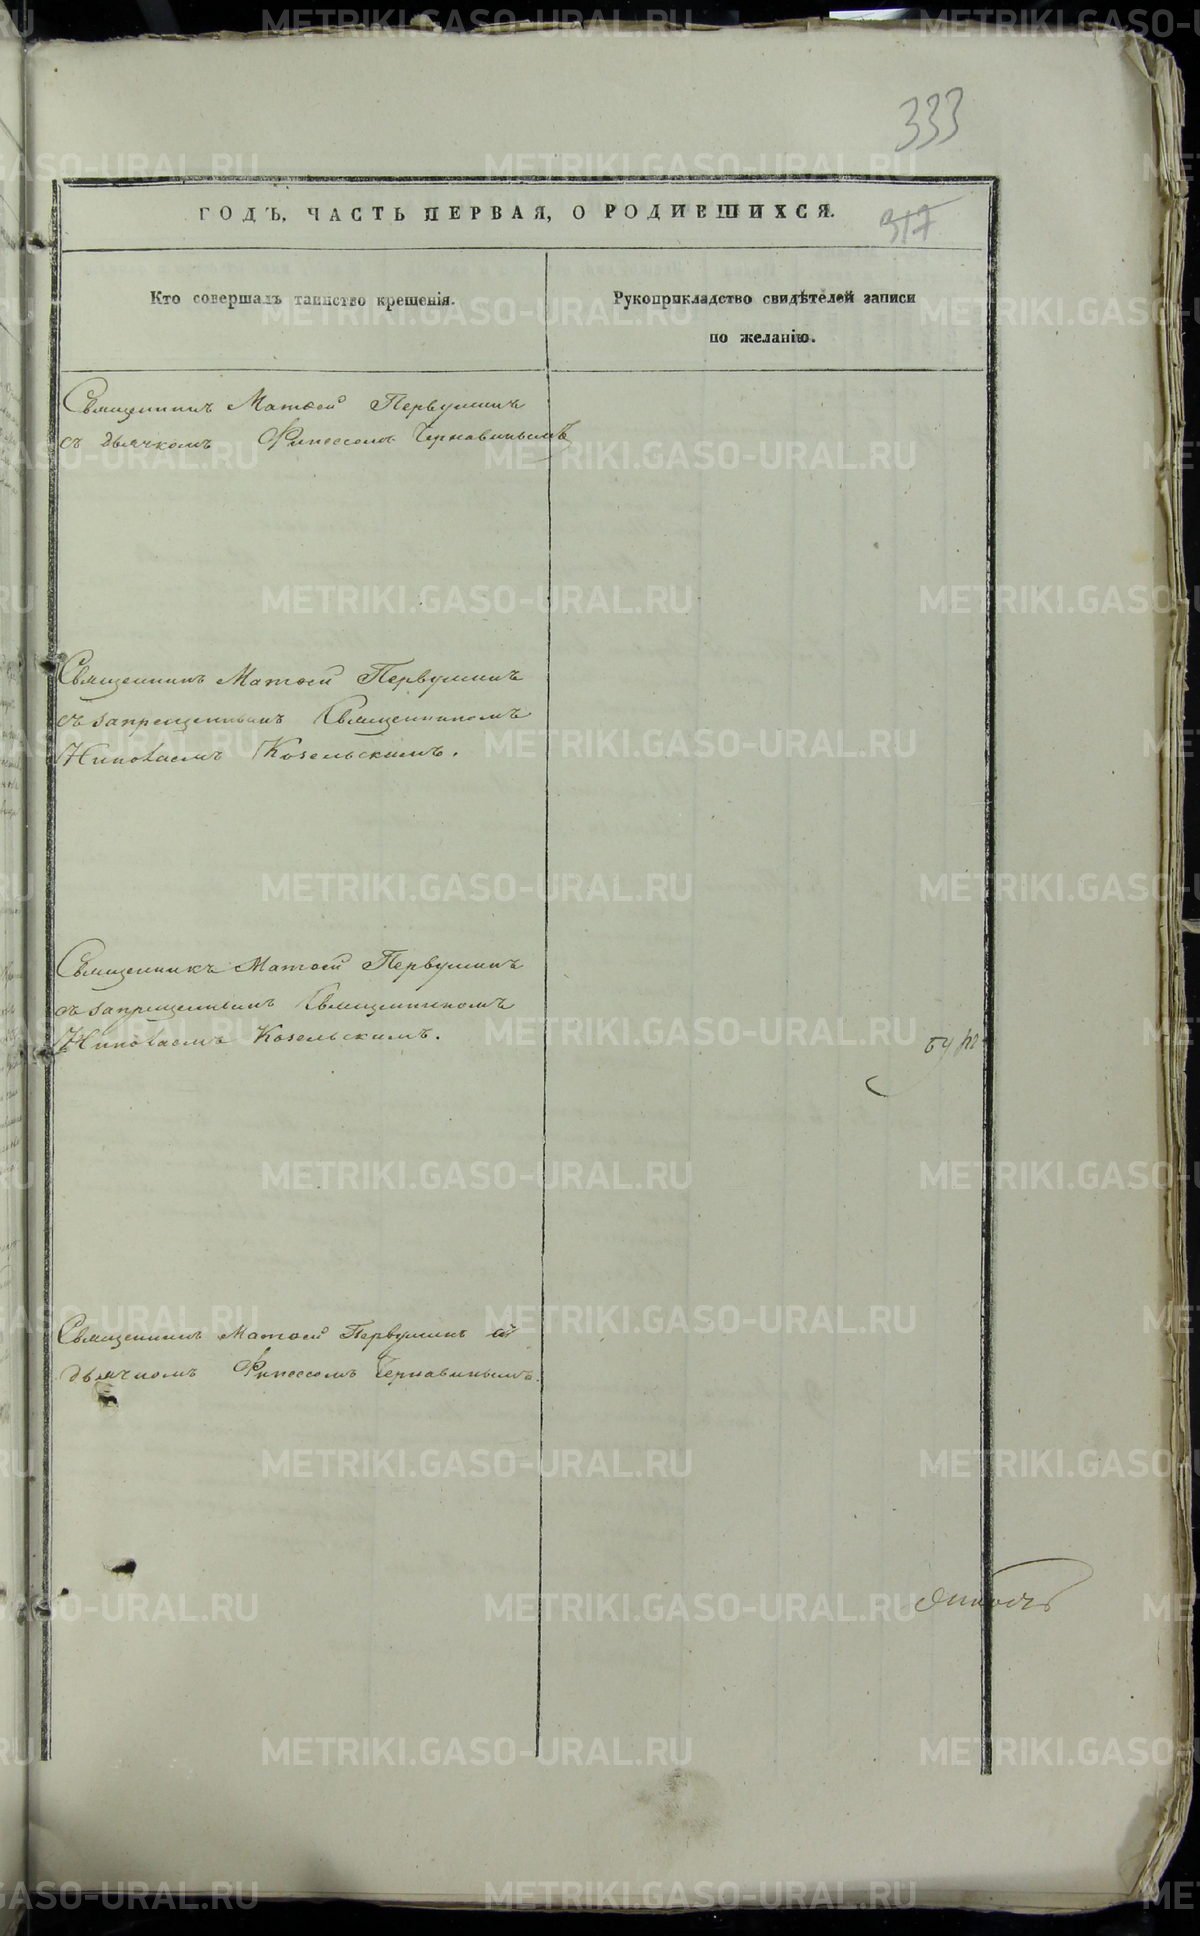 333
317
ГОДЪ, ЧАСТЬ ПЕРВАЯ, О РОДИВШИХСЯ.
Кто совершалъ таинство крещенія.
Рукоприкладство свидѣтелей записи
по желанію.
Священникъ Матѳей Первушинъ
съ дьячкомъ Чернавинымъ
Священникъ Матѳей Первушинъ
съ запрещеннымъ Священникомъ
Николаемъ Козельскимъ.
Священникъ Матѳей Первушинъ
съ запрещеннымъ Священникомъ
Николаемъ Козельскимъ.
Священникъ Матѳей Первушинъ съ
дьячкомъ Чернавинымъ.
METRIKI.GASO-URAL.RU